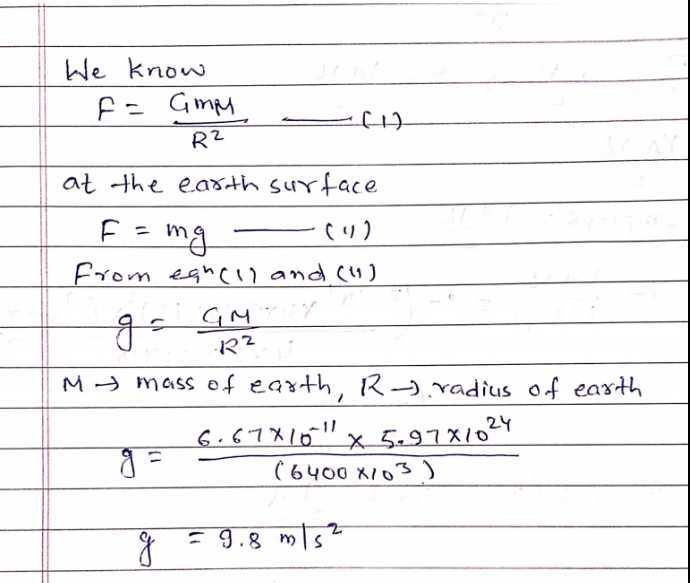 We know
F = GmM / R² —— (1)
at the earth surface
F = mg —— (11)
From eqⁿ (1) and (11)
g = GM / R²
M → mass of earth, R → radius of earth
g = 6.67×10⁻¹¹ × 5.97×10²⁴ / (6400×10³)
g = 9.8 m/s²